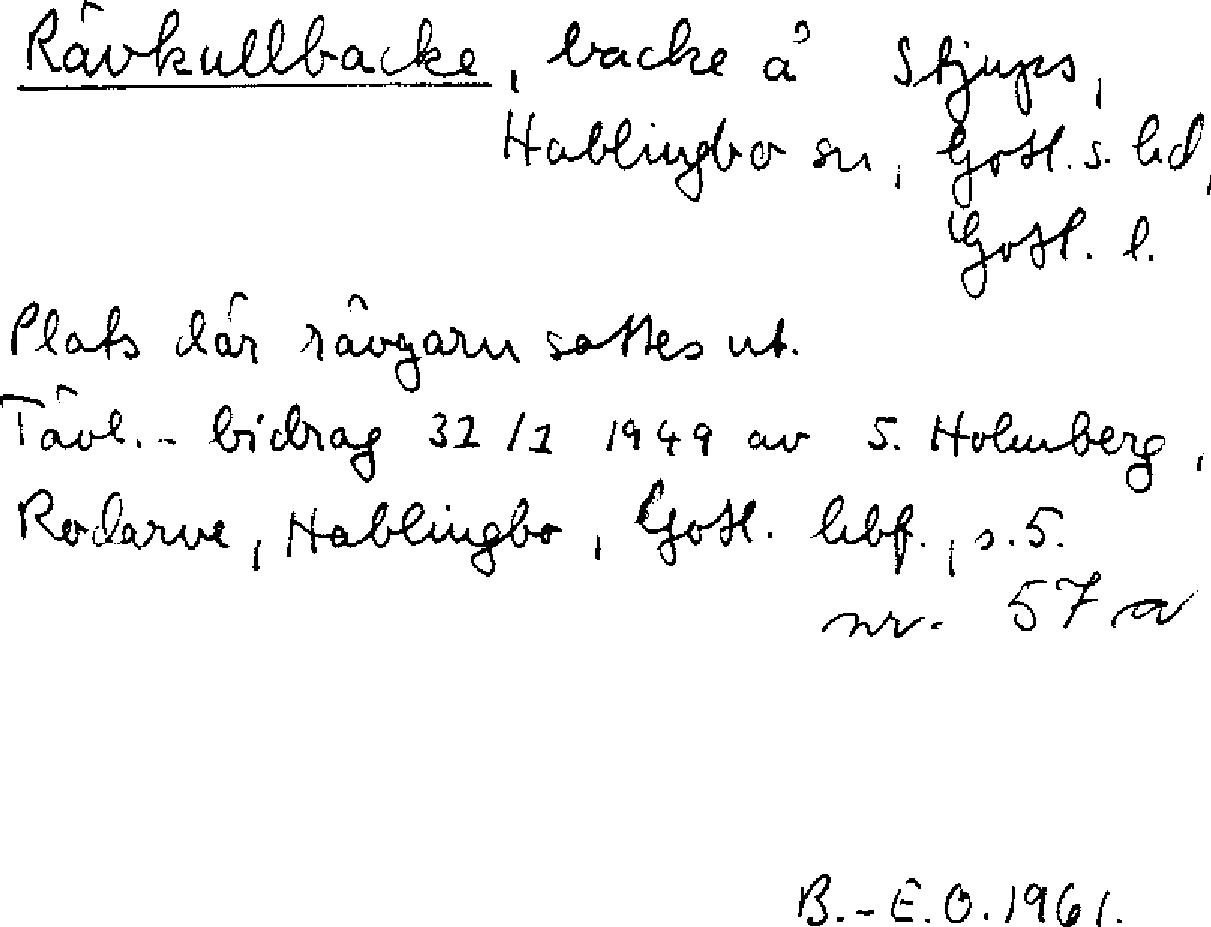 Rävkullbacke, backe å Stjups,
Hablingbo sn, Gotl. s. hd,
Gotl. l.
Plats där rävgarn sattes ut.
Tävl.- bidrag 31/1 1949 av S. Holmberg,
Rodarve, Hablingbo, Gotl. hbf., s. 5.
nr. 57 a
B.-E.O. 1961.